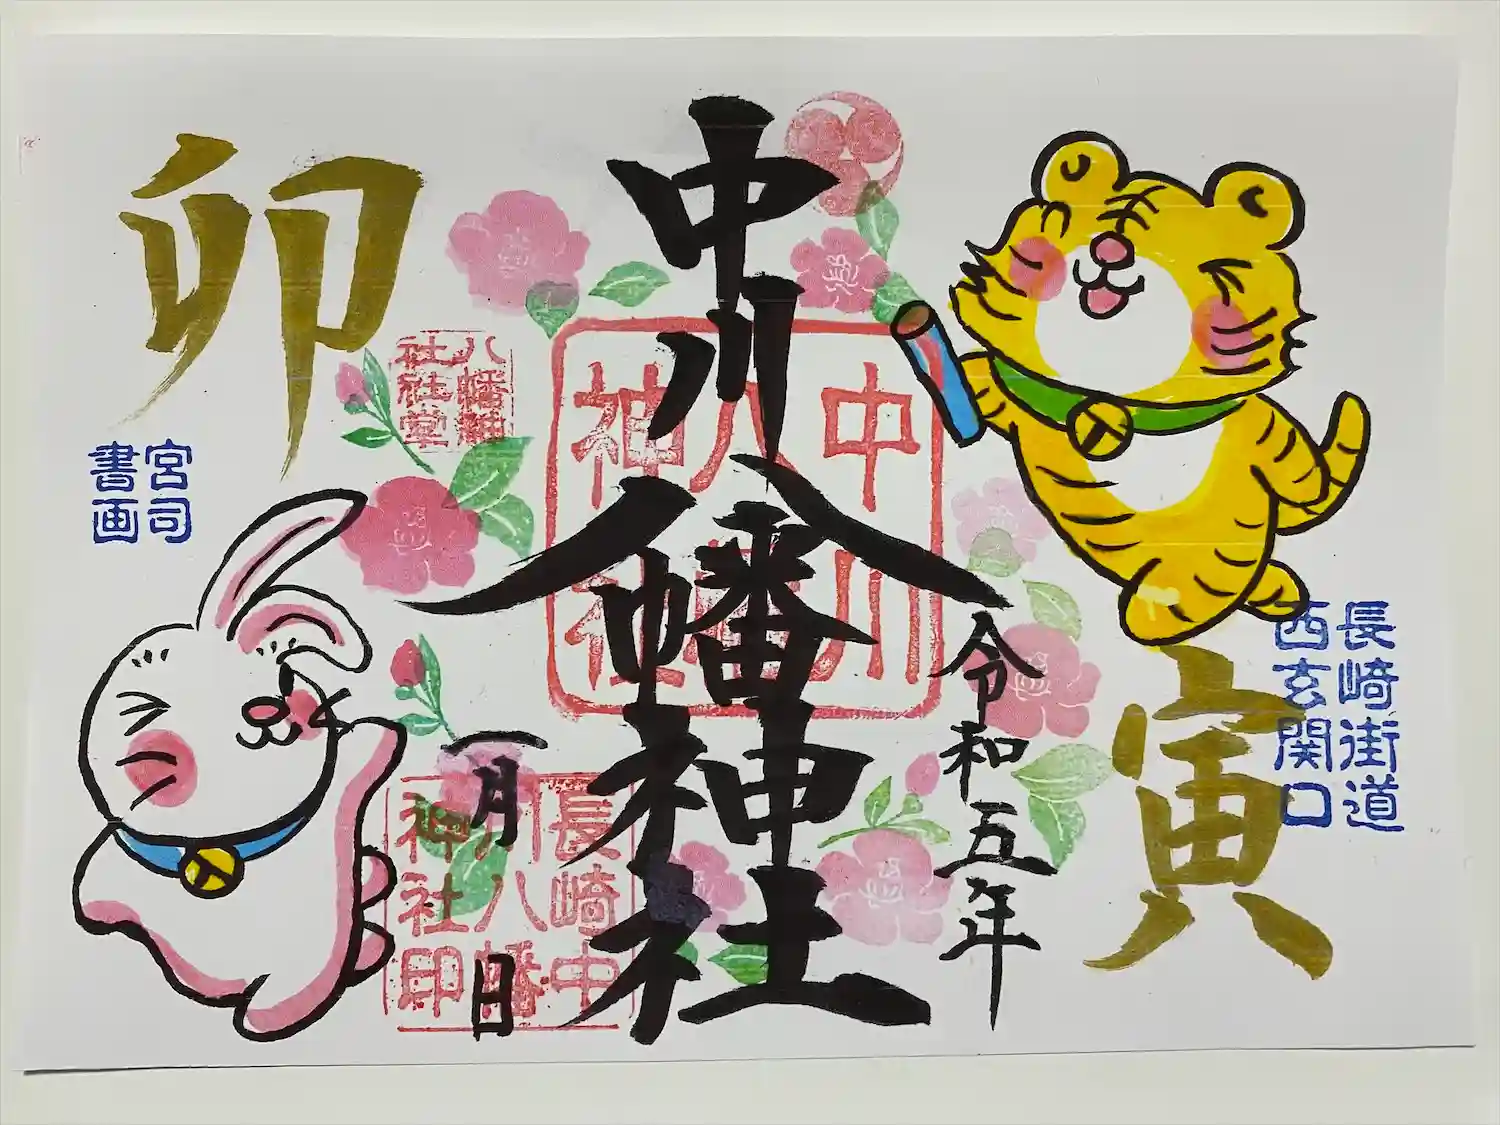 寅
長崎街道
西玄関口
中川八幡神社
令和五年
一月 日
中川
八幡
神社
長崎中
川八幡
神社印
八幡神
社社堂
卯
宮司
書画